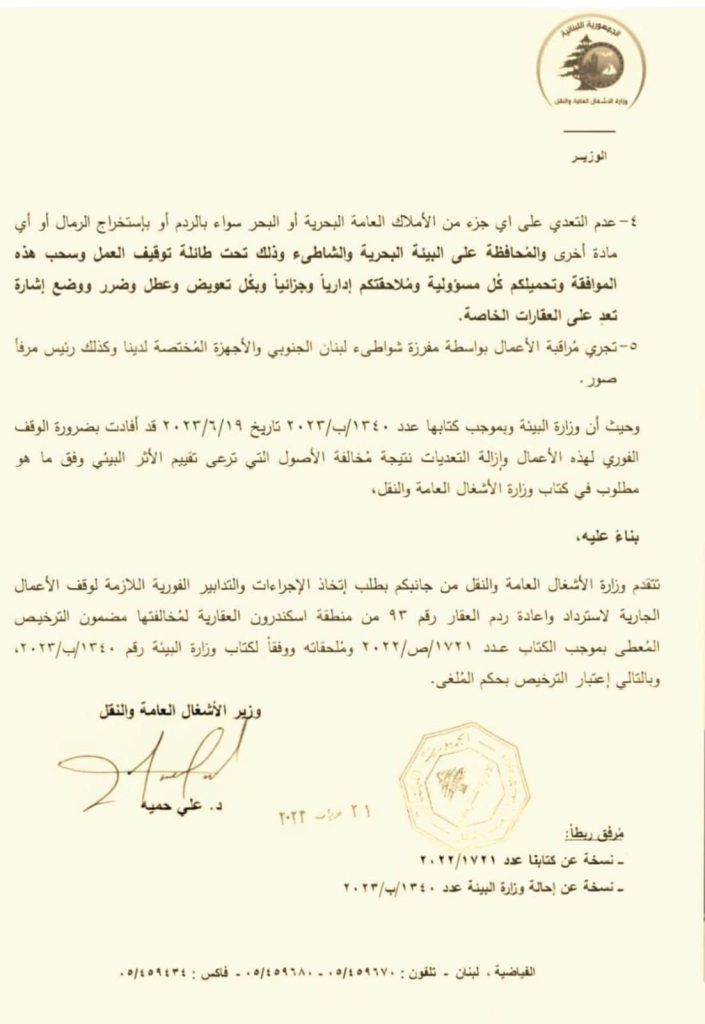 الجمهورية اللبنانية
وزارة الأشغال العامة والنقل
الوزيـر
٤- عدم التعدي على اي جزء من الأملاك العامة البحرية أو البحر سواء بالردم أو بإستخراج الرمال أو أي
مادة أخرى والمُحافظة على البيئة البحرية والشاطىء وذلك تحت طائلة توقيف العمل وسحب هذه
الموافقة وتحميلكم كُل مسؤولية ومُلاحقتكم إدارياً وجزائياً وبكُل تعويض وعطل وضرر ووضع إشارة
تعدِ على العقارات الخاصة.
٥- تجري مُراقبة الأعمال بواسطة مفرزة شواطىء لبنان الجنوبي والأجهزة المُختصة لدينا وكذلك رئيس مرفأ
صور.
وحيث أن وزارة البيئة وبموجب كتابها عدد ١٣٤٠/ب/٢٠٢٣ تاريخ ٢٠٢٣/٦/١٩ قد أفادت بضرورة الوقف
الفوري لهذه الأعمال وإزالة التعديات نتيجة مُخالفة الأصول التي ترعى تقييم الأثر البيئي وفق ما هو
مطلوب في كتاب وزارة الأشغال العامة والنقل،
بناءً عليه،
تتقدم وزارة الأشغال العامة والنقل من جانبكم بطلب إتخاذ الإجراءات والتدابير الفورية اللازمة لوقف الأعمال
الجارية لاسترداد واعادة ردم العقار رقم ٩٣ من منطقة اسكندرون العقارية لمُخالفتها مضمون الترخيص
المُعطى بموجب الكتاب عـدد ١٧٢١/ص/٢٠٢٢ ومُلحقاته ووفقاً لكتاب وزارة البيئة رقم ١٣٤٠/ب/٢٠٢٣،
وبالتالي إعتبار الترخيص بحكم المُلغى.
وزير الأشغال العامة والنقل
د. علي حميه
٢١ حزيران ٢٠٢٣
مُرفق ربطاً:
ـ نسخة عن كتابنا عدد ٢٠٢٢/١٧٢١
ـ نسخة عن إحالة وزارة البيئة عدد ١٣٤٠/ب/٢٠٢٣
الفياضية ، لبنان - تلفون : ٠٥/٤٥٩٦٧٠ - ٠٥/٤٥٩٦٨٠ - فاكس : ٠٥/٤٥٩٤٣٤